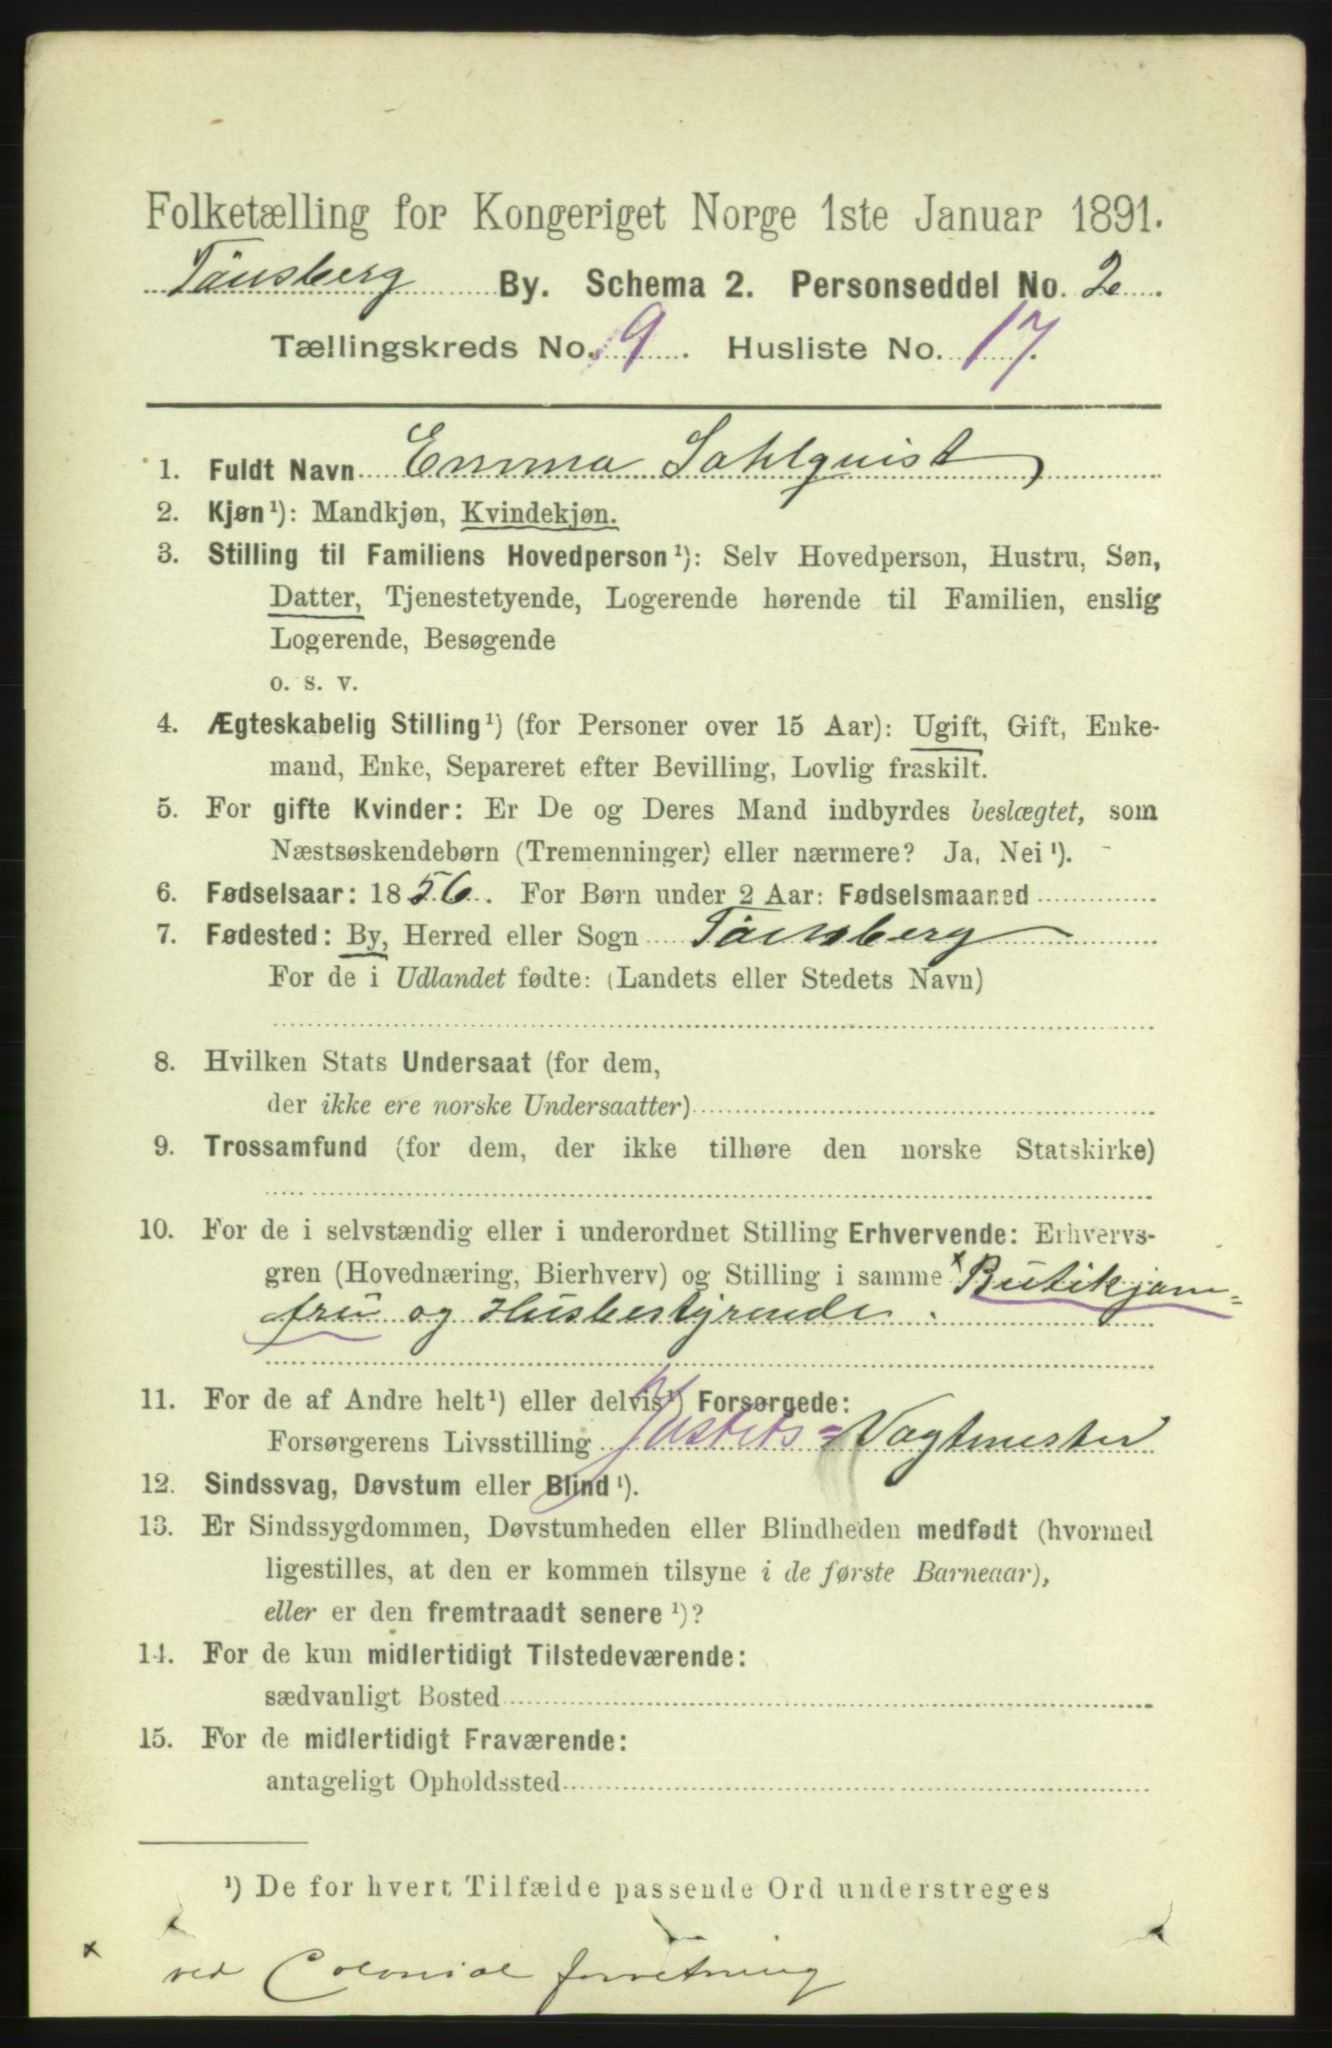 Folketælling for Kongeriget Norge 1ste Januar 1891.
Tönsberg By. Schema 2. Personseddel No. 2.
Tællingskreds No. 9. Husliste No. 17.
1. Fuldt Navn Emma Sahlquist
2. Kjøn¹): Mandkjøn, Kvindekjøn.
3. Stilling til Familiens Hovedperson¹): Selv Hovedperson, Hustru, Søn,
Datter, Tjenestetyende, Logerende hørende til Familien, enslig
Logerende, Besøgende
o. s. v.
4. Ægteskabelig Stilling¹) (for Personer over 15 Aar): Ugift, Gift, Enke-
mand, Enke, Separeret efter Bevilling, Lovlig fraskilt.
5. For gifte Kvinder: Er De og Deres Mand indbyrdes beslægtet, som
Næstsøskendebørn (Tremenninger) eller nærmere? Ja, Nei¹). -
6. Fødselsaar: 1856. For Børn under 2 Aar: Fødselsmaaned
7. Fødested: By, Herred eller Sogn Tönsberg
For de i Udlandet fødte: (Landets eller Stedets Navn)
8. Hvilken Stats Undersaat (for dem,
der ikke ere norske Undersaatter)
9. Trossamfund (for dem, der ikke tilhøre den norske Statskirke)
10. For de i selvstændig eller i underordnet Stilling Erhvervende: Erhvervs-
gren (Hovednæring, Bierhverv) og Stilling i samme x Butikjom=
fru og Husbestyrende.
11. For de af Andre helt¹) eller delvis¹) Forsørgede:
Forsørgerens Livsstilling Justits=Vagtmester
12. Sindssvag, Døvstum eller Blind¹).
13. Er Sindssygdommen, Døvstumheden eller Blindheden medfødt (hvormed
ligestilles, at den er kommen tilsyne i de første Barneaar),
eller er den fremtraadt senere¹)?
14. For de kun midlertidigt Tilstedeværende:
sædvanligt Bosted
15. For de midlertidigt Fraværende:
antageligt Opholdssted
¹) De for hvert Tilfælde passende Ord understreges
x ved Colonial forretning